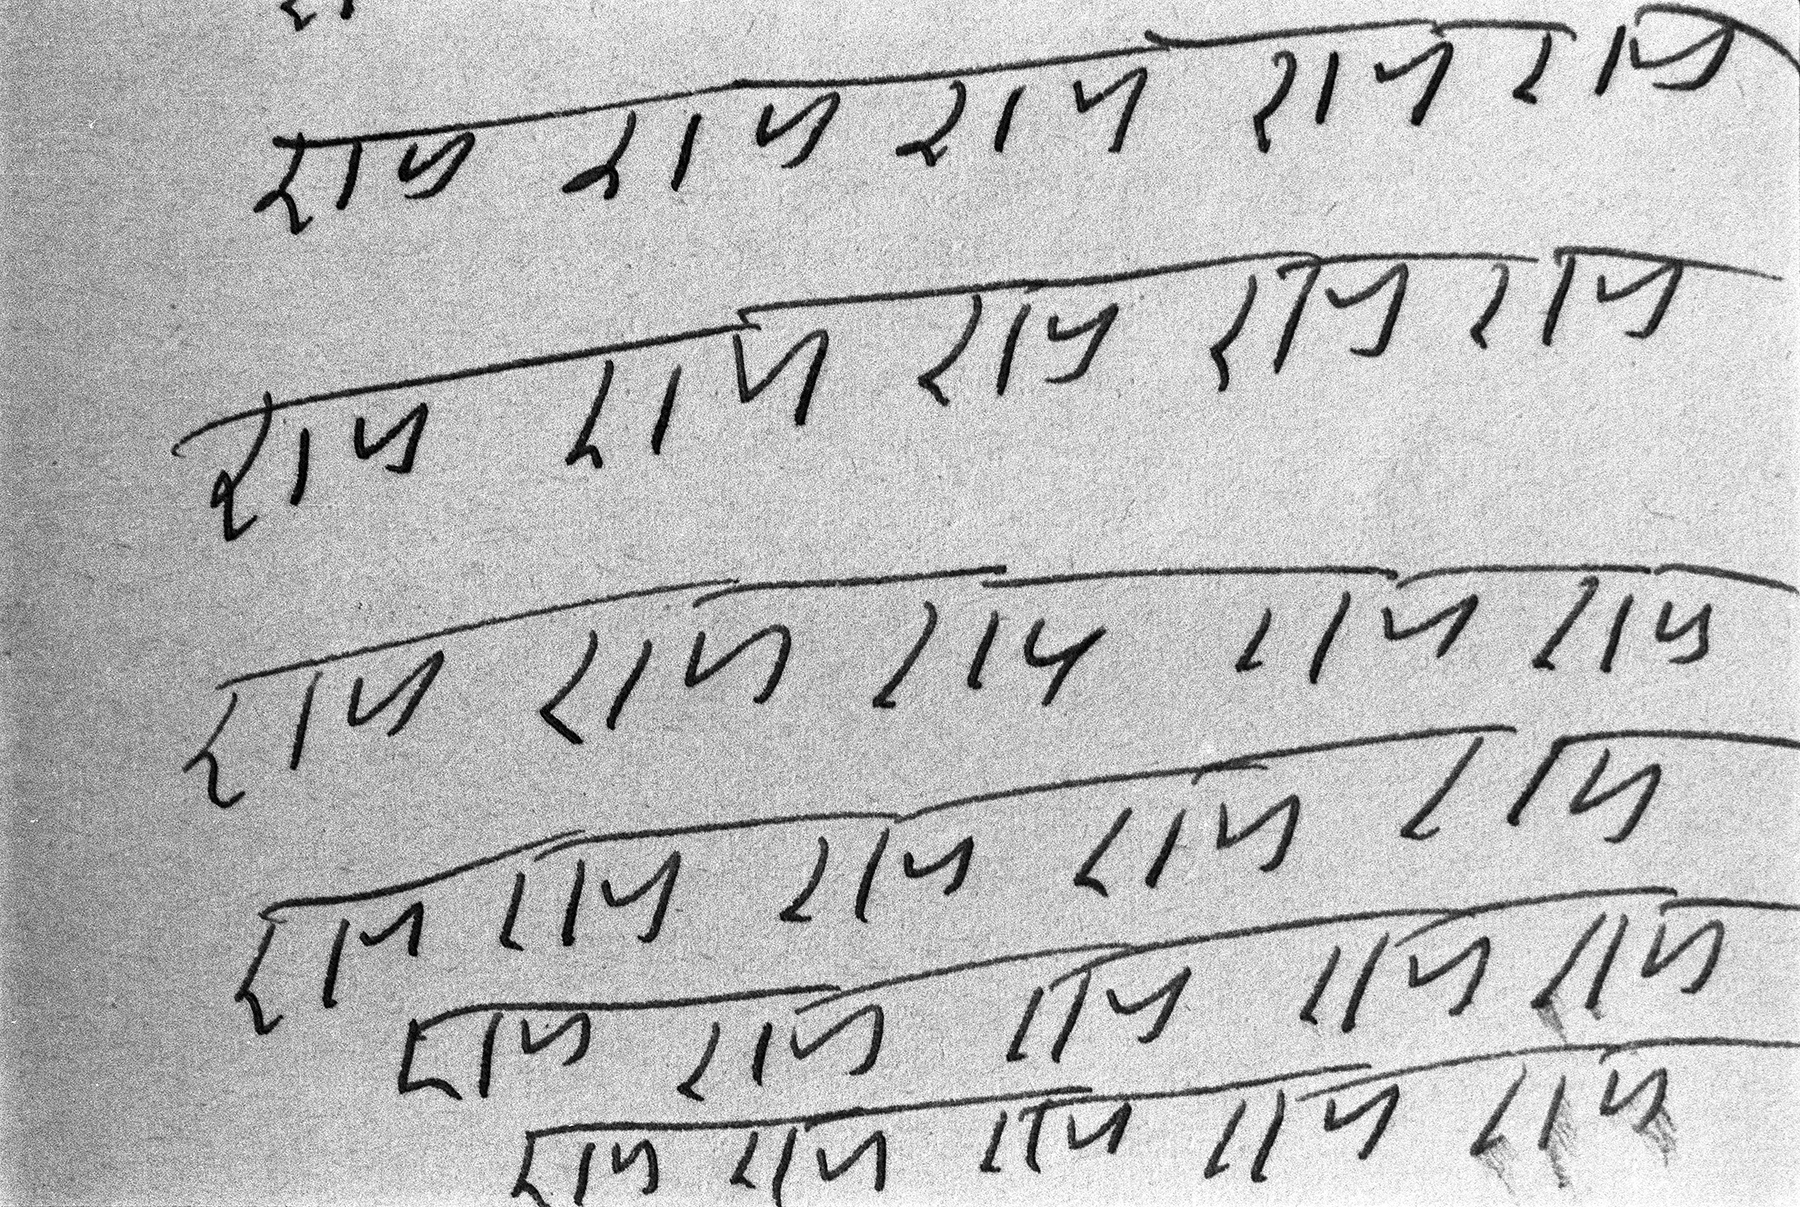 राम राम राम राम राम
राम राम राम राम राम
राम राम राम राम राम
राम राम राम राम राम
राम राम राम राम राम
राम राम राम राम राम